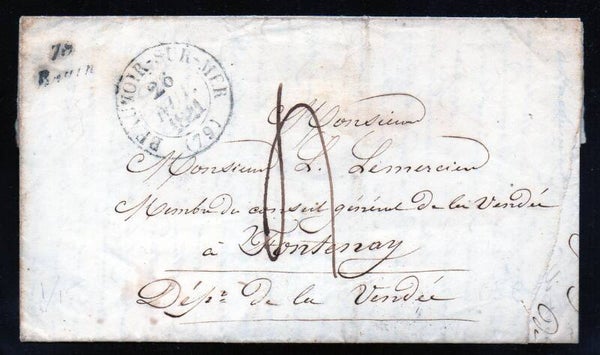 79
Bouin
BEAUVOIR-SUR-MER (79)
26
1841
4
Monsieur
Monsieur L. Lemercier
Membre du conseil général de la Vendée
à Fontenay
Dépt. de la Vendée